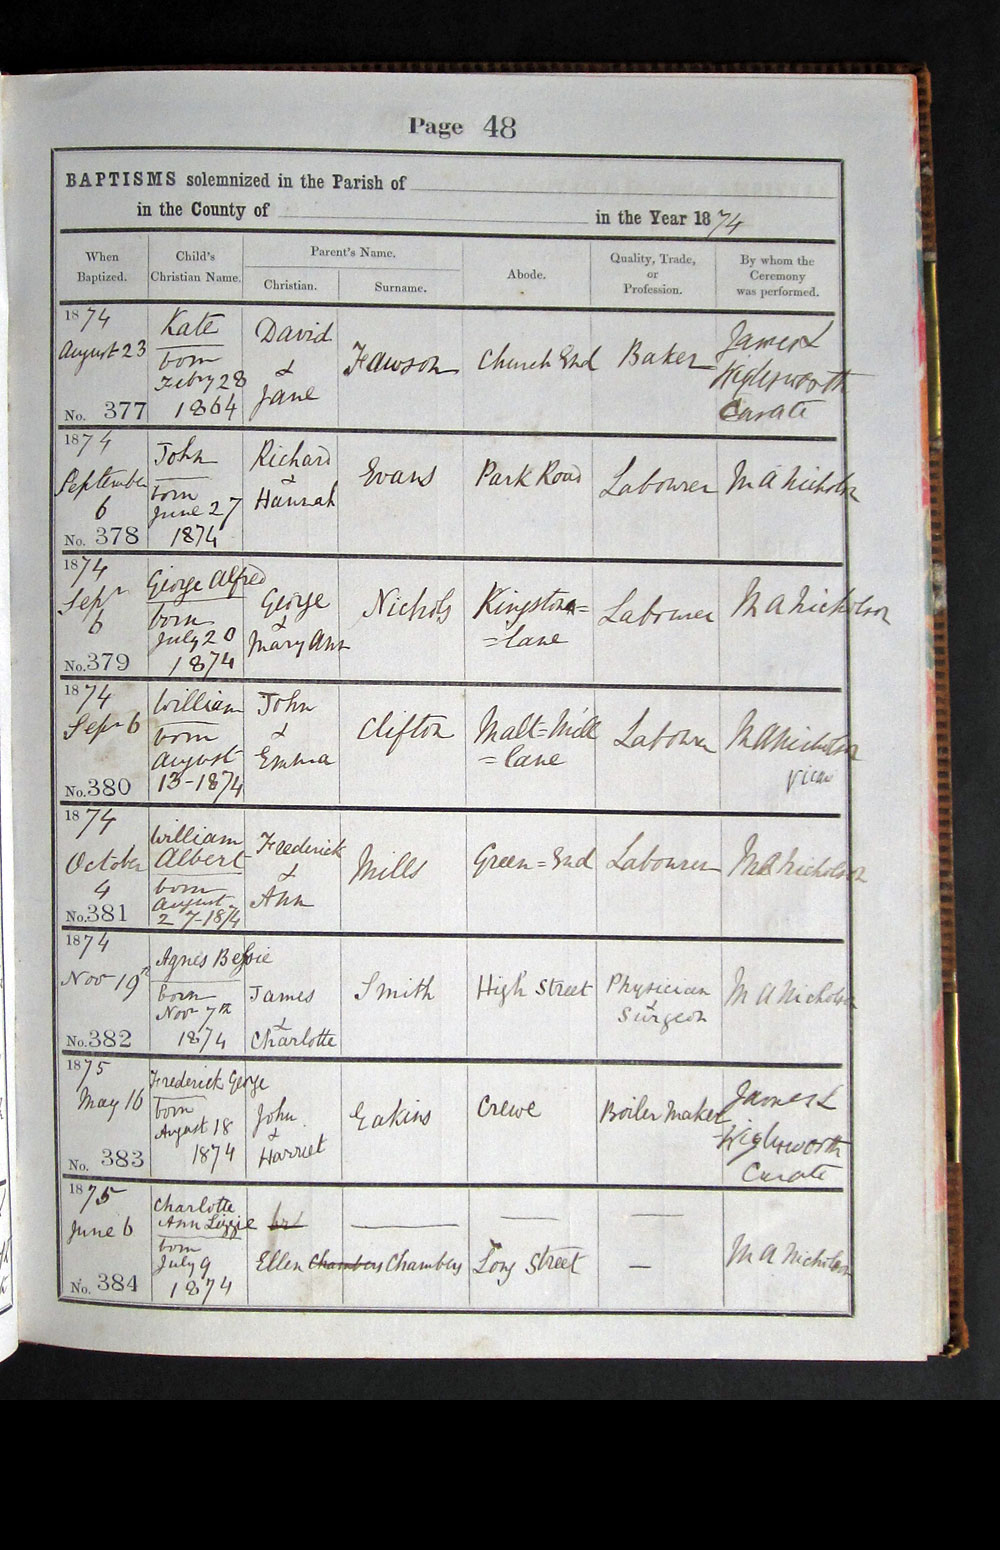 Page 48
BAPTISMS solemnized in the Parish of
in the County of in the Year 1874
When Baptized.
Child's Christian Name.
Parent's Name.
Christian.
Surname.
Abode.
Quality, Trade, or Profession.
By whom the Ceremony was performed.
1874
August 23
No. 377
Kate
born
Febry 28
1864
David
&
Jane
Fawson
Church End
Baker
James L
Wiglesworth
Curate
1874
September
6
No. 378
John
born
June 27
1874
Richard
&
Hannah
Evans
Park Road
Labourer
M A Nicholson
1874
Sepr
6
No. 379
George Alfred
born
July 20
1874
George
&
Mary Ann
Nichols
Kingston=
=lane
Labourer
M A Nicholson
1874
Sepr 6
No. 380
William
born
August
13-1874
John
&
Emma
Clifton
Malt=Mill
=lane
Labourer
M A Nicholson
Vicar
1874
October
4
No. 381
William
Albert
born
August
27-1874
Frederick
&
Ann
Mills
Green=End
Labourer
M A Nicholson
1874
Nov 19th
No. 382
Agnes Bessie
born
Nov 7th
1874
James
&
Charlotte
Smith
High Street
Physician
&
Surgeon
M A Nicholson
1875
May 16
No. 383
Frederick George
born
August 18
1874
John
&
Harriet
Eakins
Crewe
Boiler Maker
James L
Wiglesworth
Curate
1875
June 6
No. 384
Charlotte
Ann Lizzie
born
July 9
1874
Ellen Chambers Chambers
Long Street
—
M A Nicholson